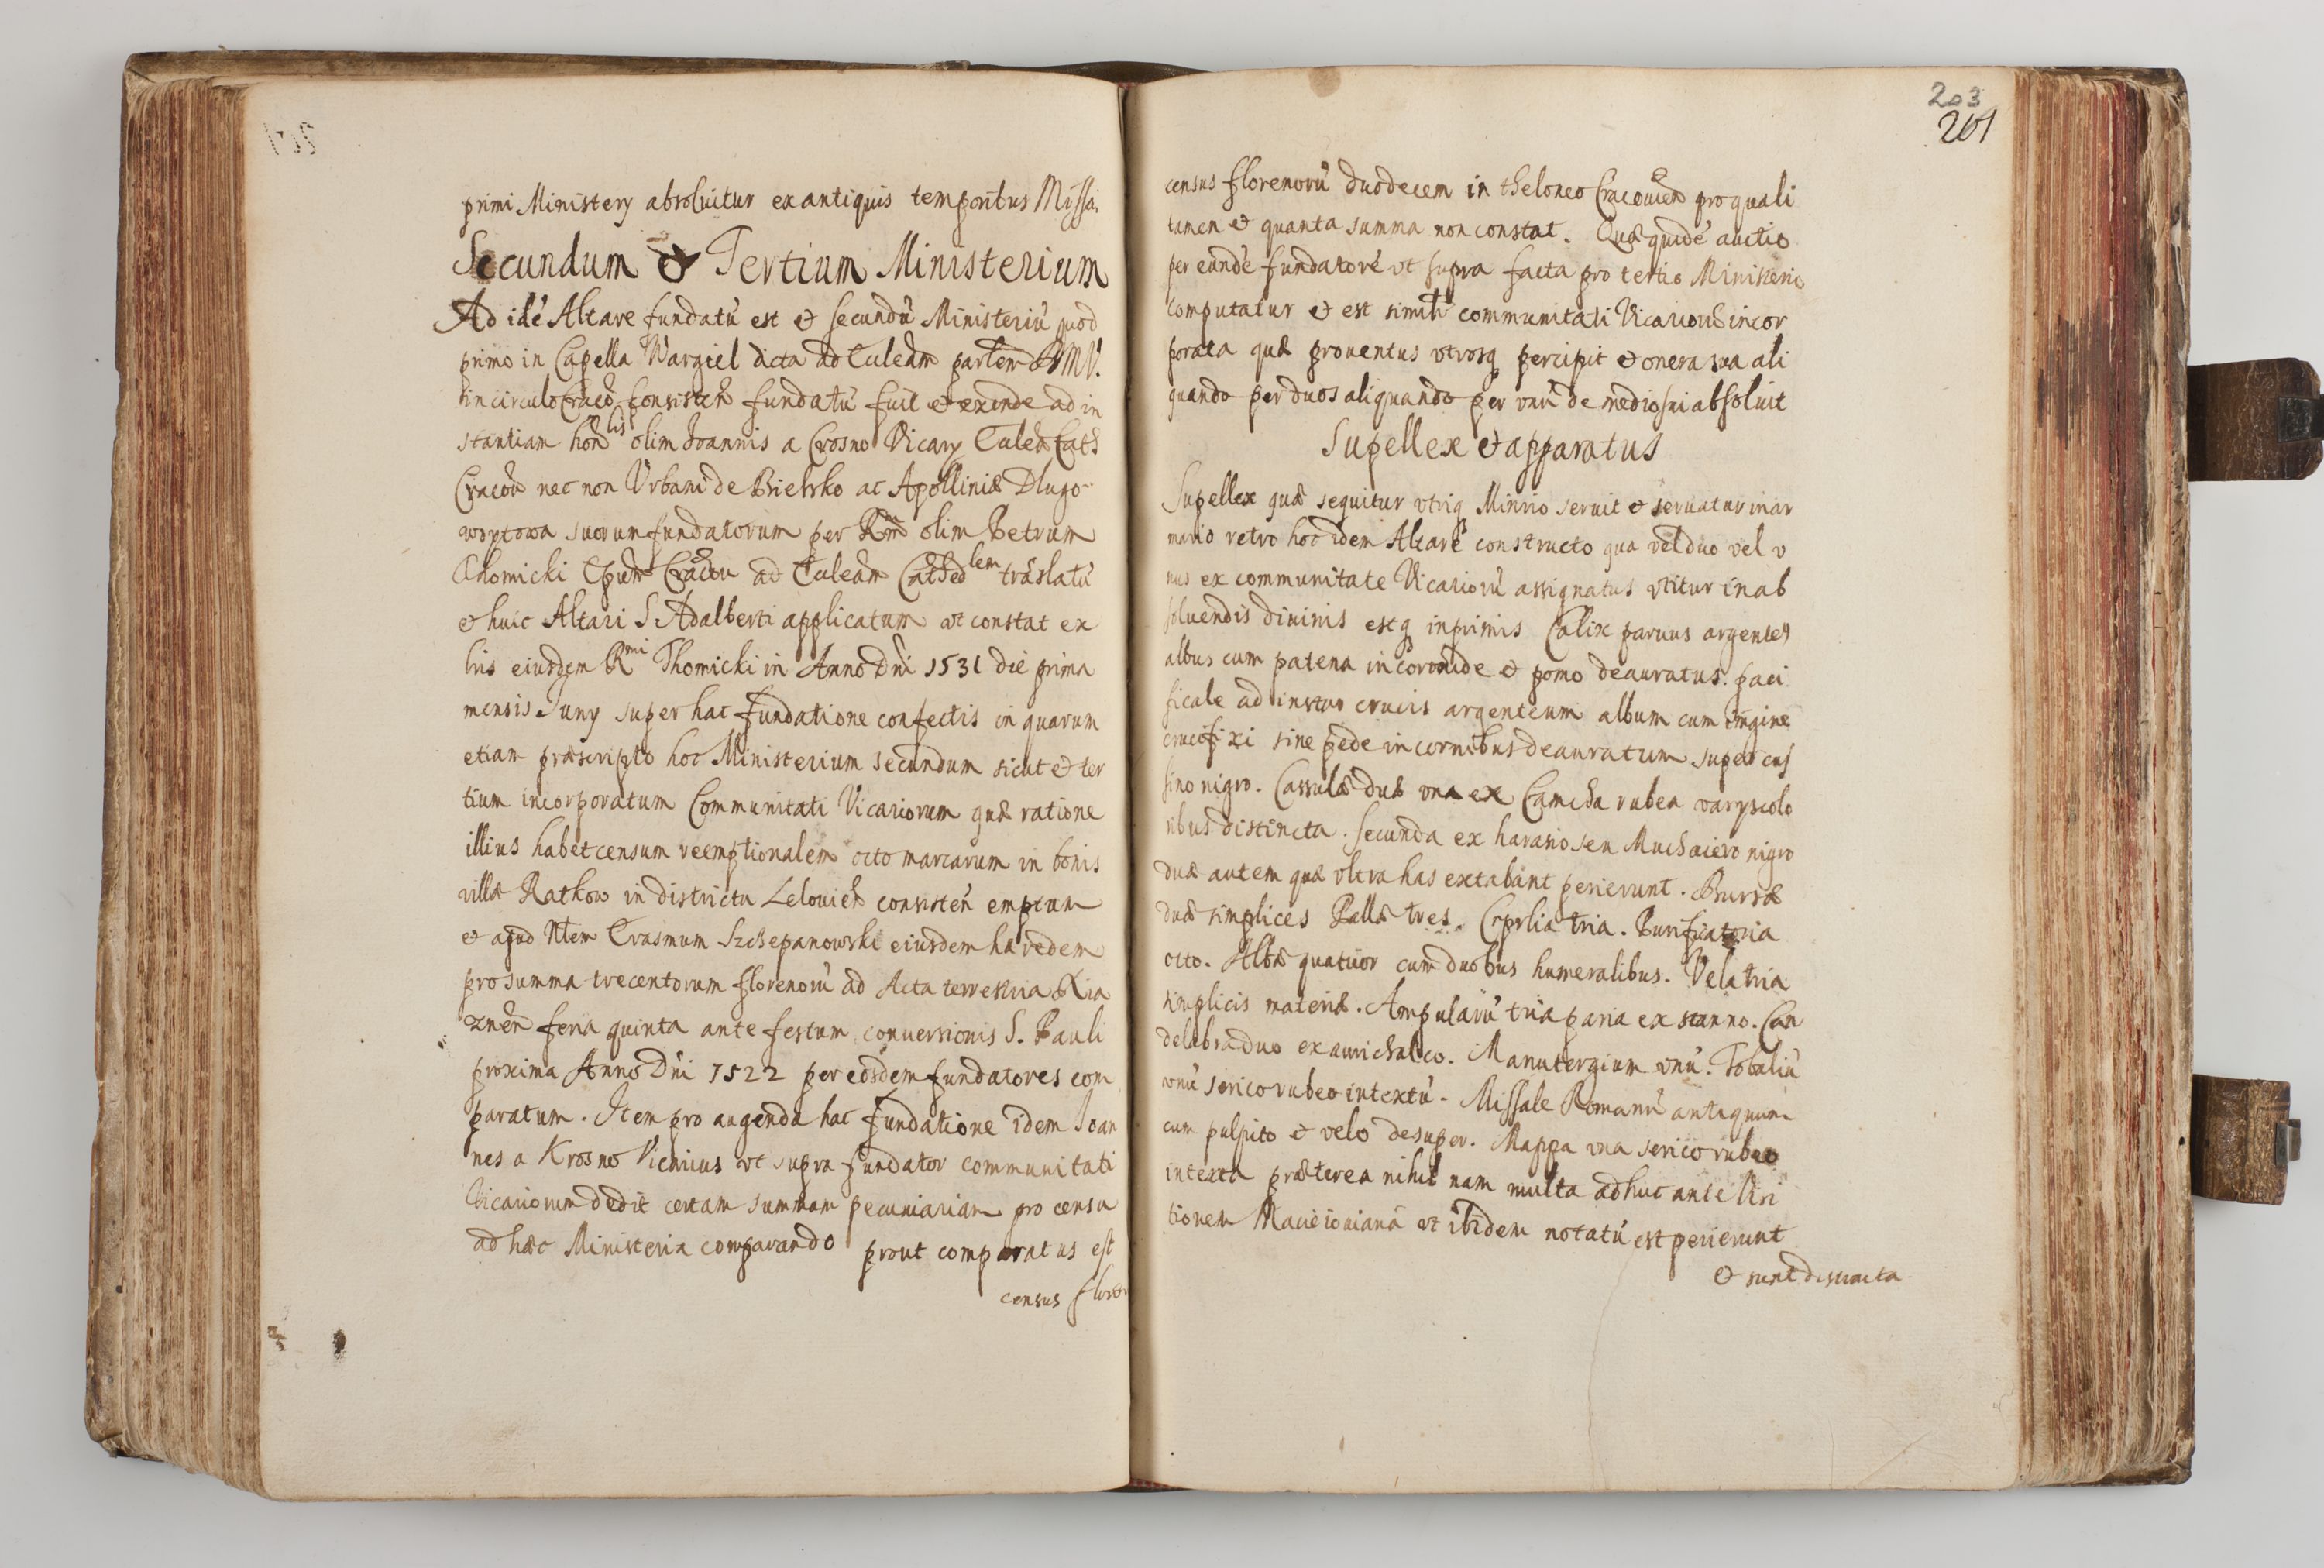 primi Ministerÿ absoluitur ex antiquis temporibus Missa.
Secundum & Tertium Ministerium
Ad idē Altare fundatū est & secundū Ministeriū quod
primo in Capella Wargiel dicta ad Ecclēam partem BMV.
in circulo Craco consisteñ fundatū fuit & exinde ad in
stantiam hoñlis olim Ioannis a Crosno Vicarÿ Ecclēæ Cath
Cracou nec non Vrbani de Bielsko ac Apolliniæ Dlugo-
woytowa suorum fundatorum per Rm̄ olim Petrum
Thomicki Ep̄um Cracou ad Ecclēam Cathedlem trāslatū
& huic Altari S Adalberti applicatum vt constat ex
lris eiusdem Rmi Thomicki in Anno Dn̄i 1531 die prima
mensis Iunÿ super hac fundatione confectis in quarum
etiam præscripto hoc Ministerium secundum sicut & ter
tium incorporatum Communitati Vicariorum quæ ratione
illius habet censum reemptionalem octo marcarum in bonis
villæ Ratkow in districtu Lelouień consisteń emptum
& apud Nlem Erasmum Szczepanowski eiusdem hæredem
pro summa trecentorum florenorū ad Acta terrestria Xia
zneñ feria quinta ante festum conuersionis S. Pauli
proxima Anno Dn̄i 1522 per eosdem fundatores com
paratum. Item pro augenda hac fundatione idem Ioan
nes a Krosno Vicarius vt supra fundator communitati
Vicariorum dedit certam summam pecuniariam pro censu
ad hæc Ministeria comparando prout comparatus est
census flor
203
201
census florenorū duodecem in theloneo Cracouień pro quali
tamen & quanta summa non constat. Quæ quidē auctio
per eūndē fundatorē vt supra facta pro tertio Ministerio
computatur & est similr communitati Vicarioru incor
porata quæ prouentus vtrosq percipit & onera sua ali
quando per duos aliquando per vnū de medio sui absoluit
Supellex & apparatus
Supellex quæ sequitur vtriq Minrio seruit & seruatur in ar
mario retro hoc idem Altare constructo qua vel duo vel v
nus ex communitate Vicariorū assignatus vtitur in ab
soluendis diuinis estq inprimis Calix paruus argente9
albus cum patena in coronide & pomo deauratus. paci
ficale ad instar crucis argenteum album cum imgine
crucifixi sine pede in cornibus deauratum super cus
sino nigro. Cassulæ duæ vna ex Camcha rubea varÿs colo
ribus distincta. Secunda ex harasio seu Muchaiero nigro
duæ autem quæ vltra has extabant perierunt. Bursæ
duæ simplices Pallæ tres. Crprlia tria. Purificatoria
octo. Albæ quatuor cum duobus humeralibus. Vela tria
simplicis materiæ. Ampularū tria paria ex stanno. Can
delabra duo ex aurichalco. Manutergium vnū. Tobaliū
vnū serico rubeo intextū. Missale Romanū antiquum
cum pulpito & velo desuper. Mappa vna serico rubeo
intexta præterea nihil nam multa adhuc ante
tionem Macieiouianā vt ibidem notatū est perierunt
& sunt distracta